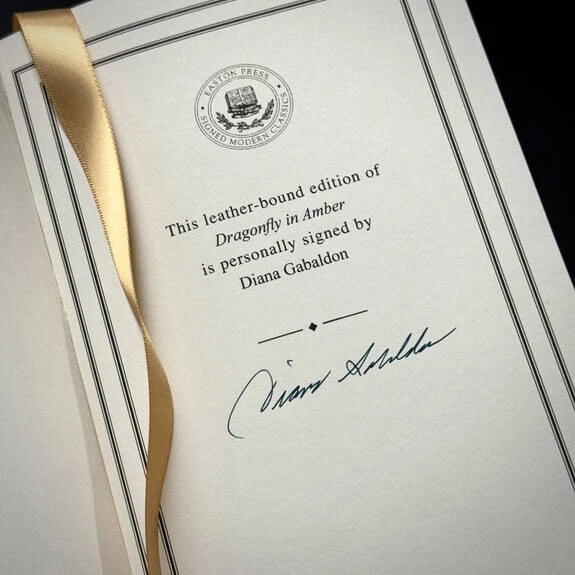 EASTON PRESS
SIGNED MODERN CLASSICS
This leather-bound edition of
Dragonfly in Amber
is personally signed by
Diana Gabaldon
Diana Gabaldon